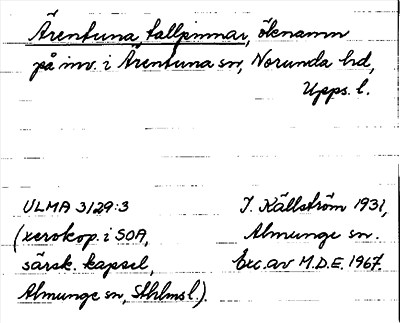 Ärentuna tallpinnar, öknamn
på inv. i Ärentuna sn, Norunda hd,
Upps. l.
ULMA 3129:3
(xerokop. i SOA,
särsk. kapsel,
Almunge sn, Sthlms l.).
J. Källström 1931,
Almunge sn.
Exc. av M.D.E. 1967.